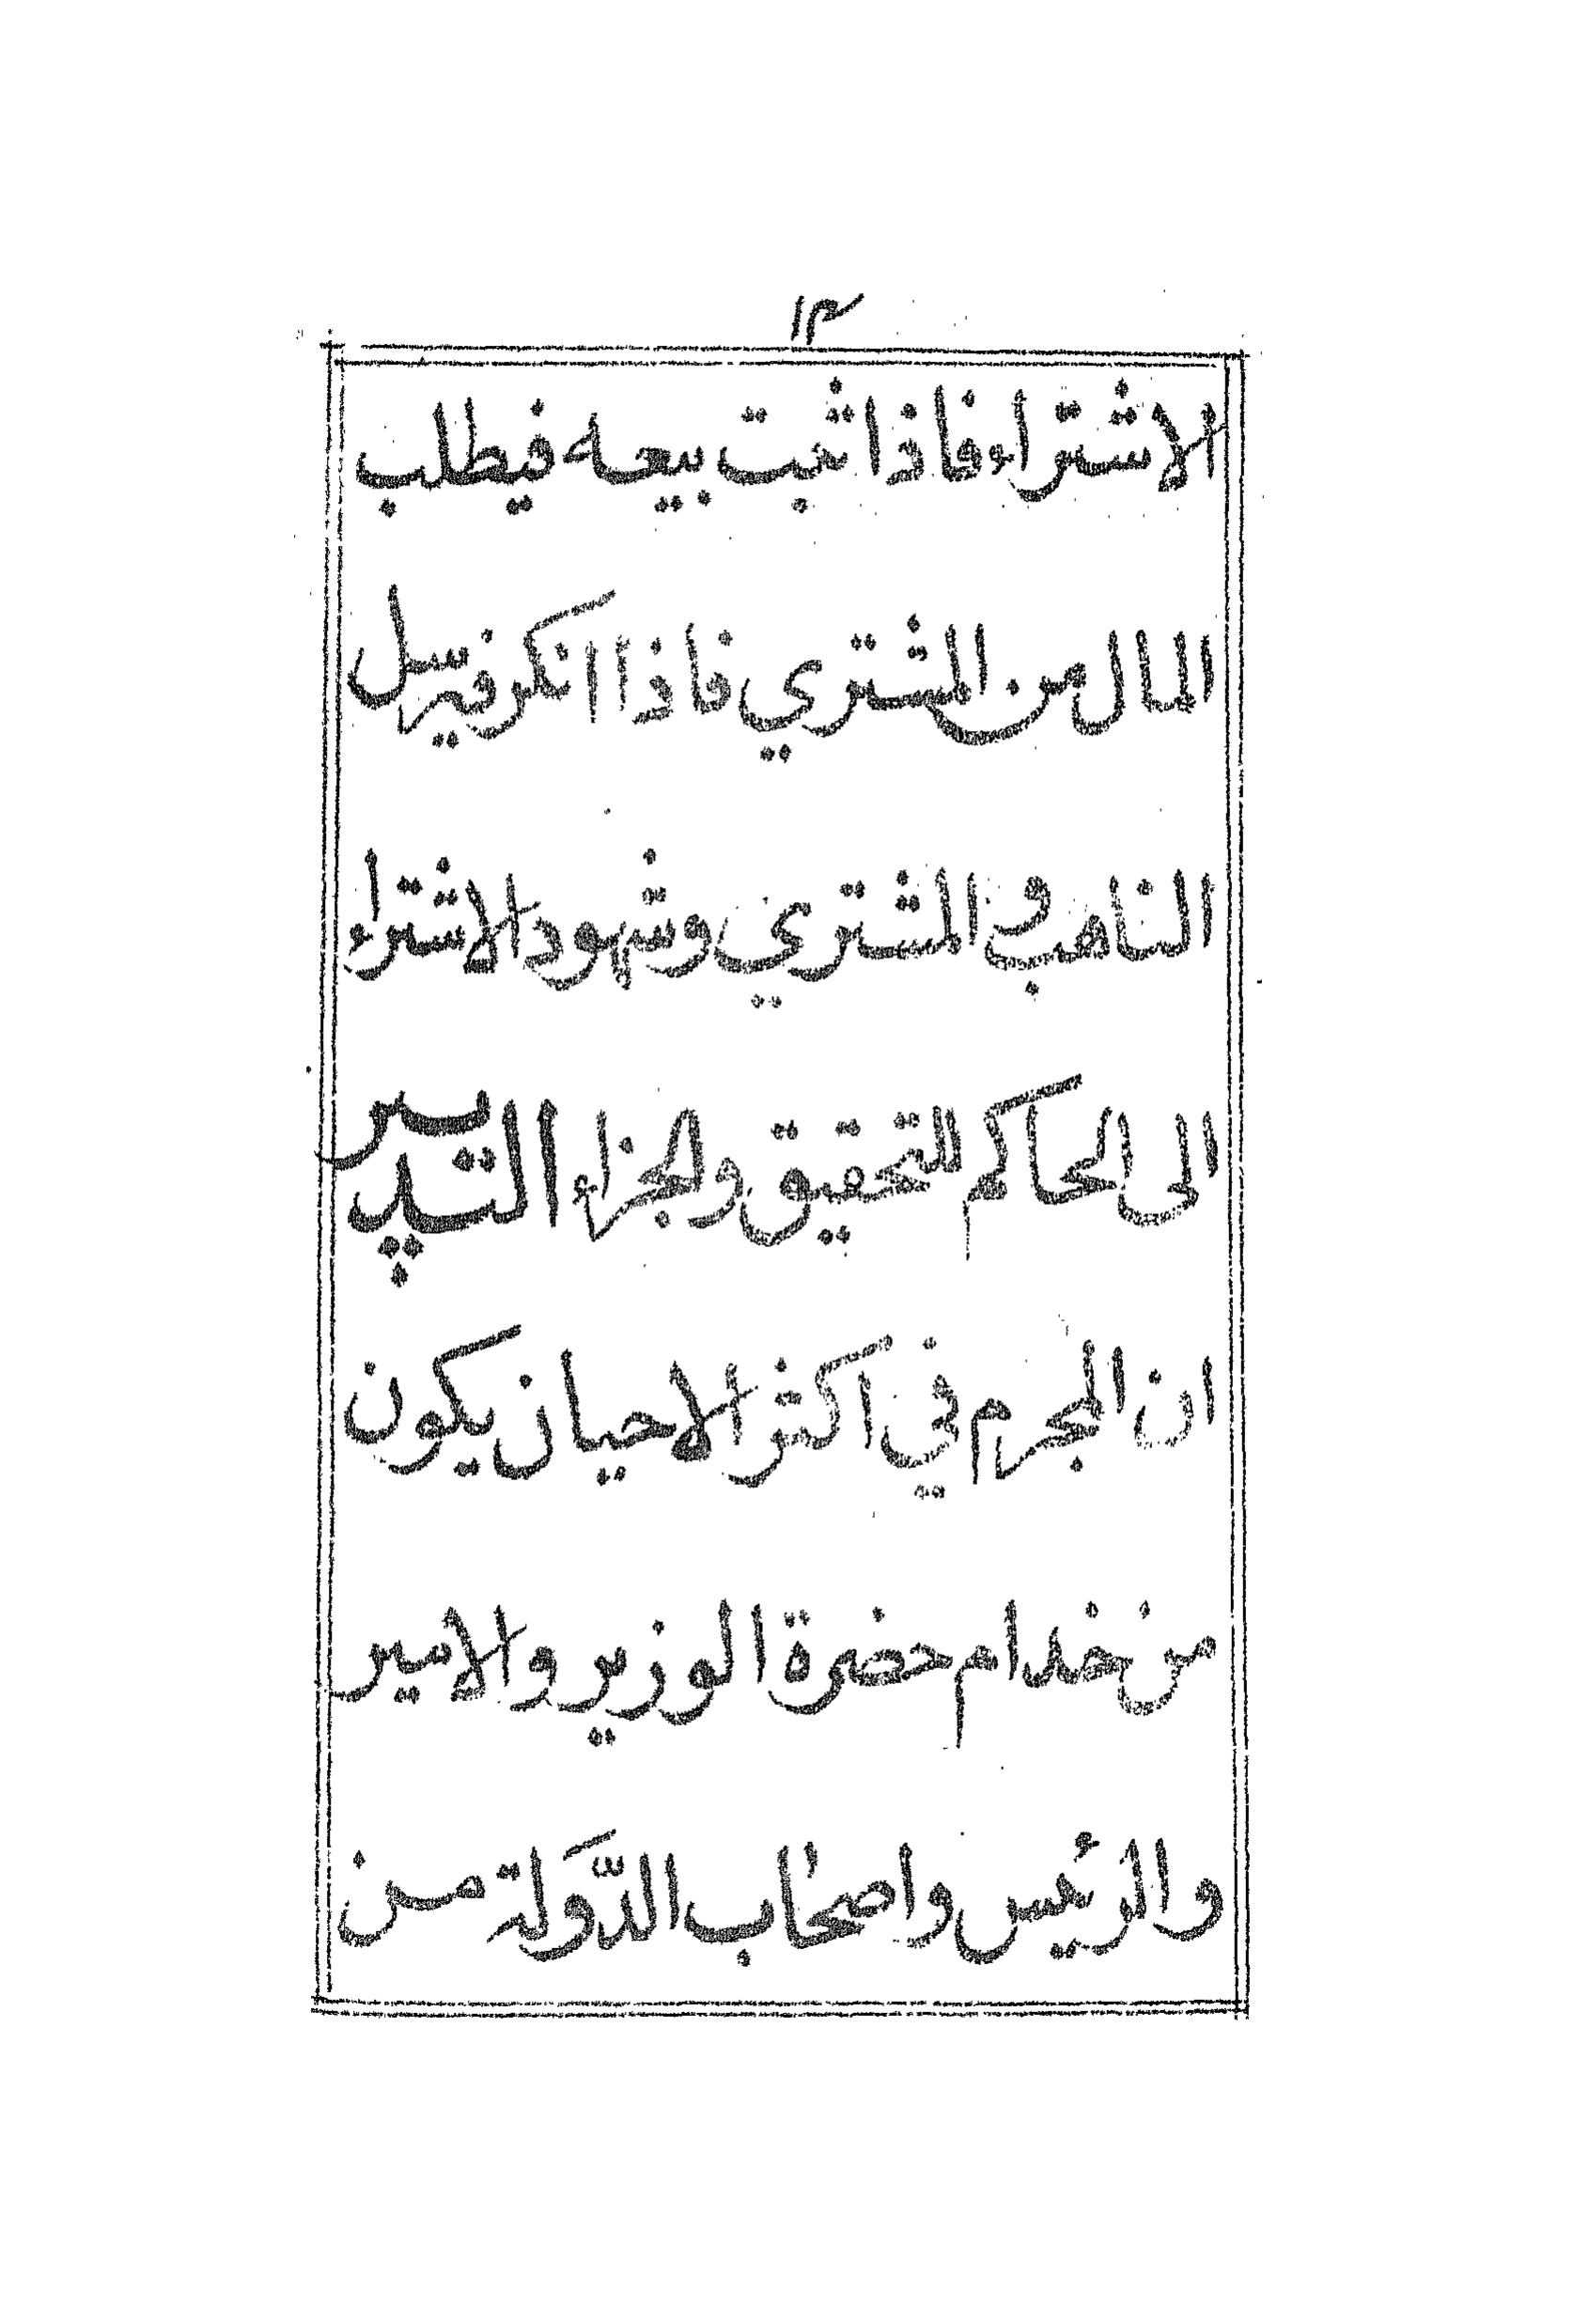 ١٣
الاشتراء فاذا ثبت بيعه فيطلب
المال من المشتري فاذا انكر فيرسل
الناهب و المشتري وشهود الاشتراء
الى الحاكم للتحقيق والجزاء التدبير
ان المجرم في اكثر الاحيان يكون
من خدام حضرة الوزير والامير
والرئيس واصحاب الدّوَلة من